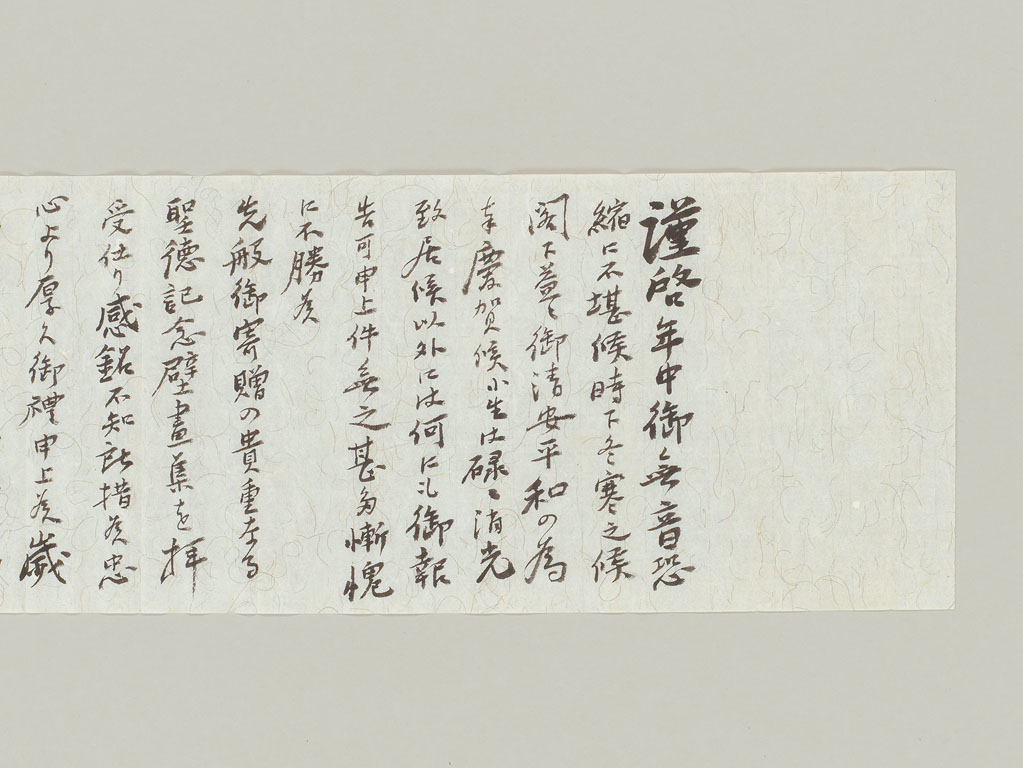 謹啓年中御無音恐
縮に不堪候時下冬寒之候
閣下益々御清安平和の為
奉慶賀候小生は碌々消光
致居候以外には何にも御報
告可申上件無之甚多慚愧
に不勝候
先般御寄贈の貴重なる
聖徳記念壁畫集を拝
受仕り感銘不知所措候忠
心より厚く御禮申上候歳